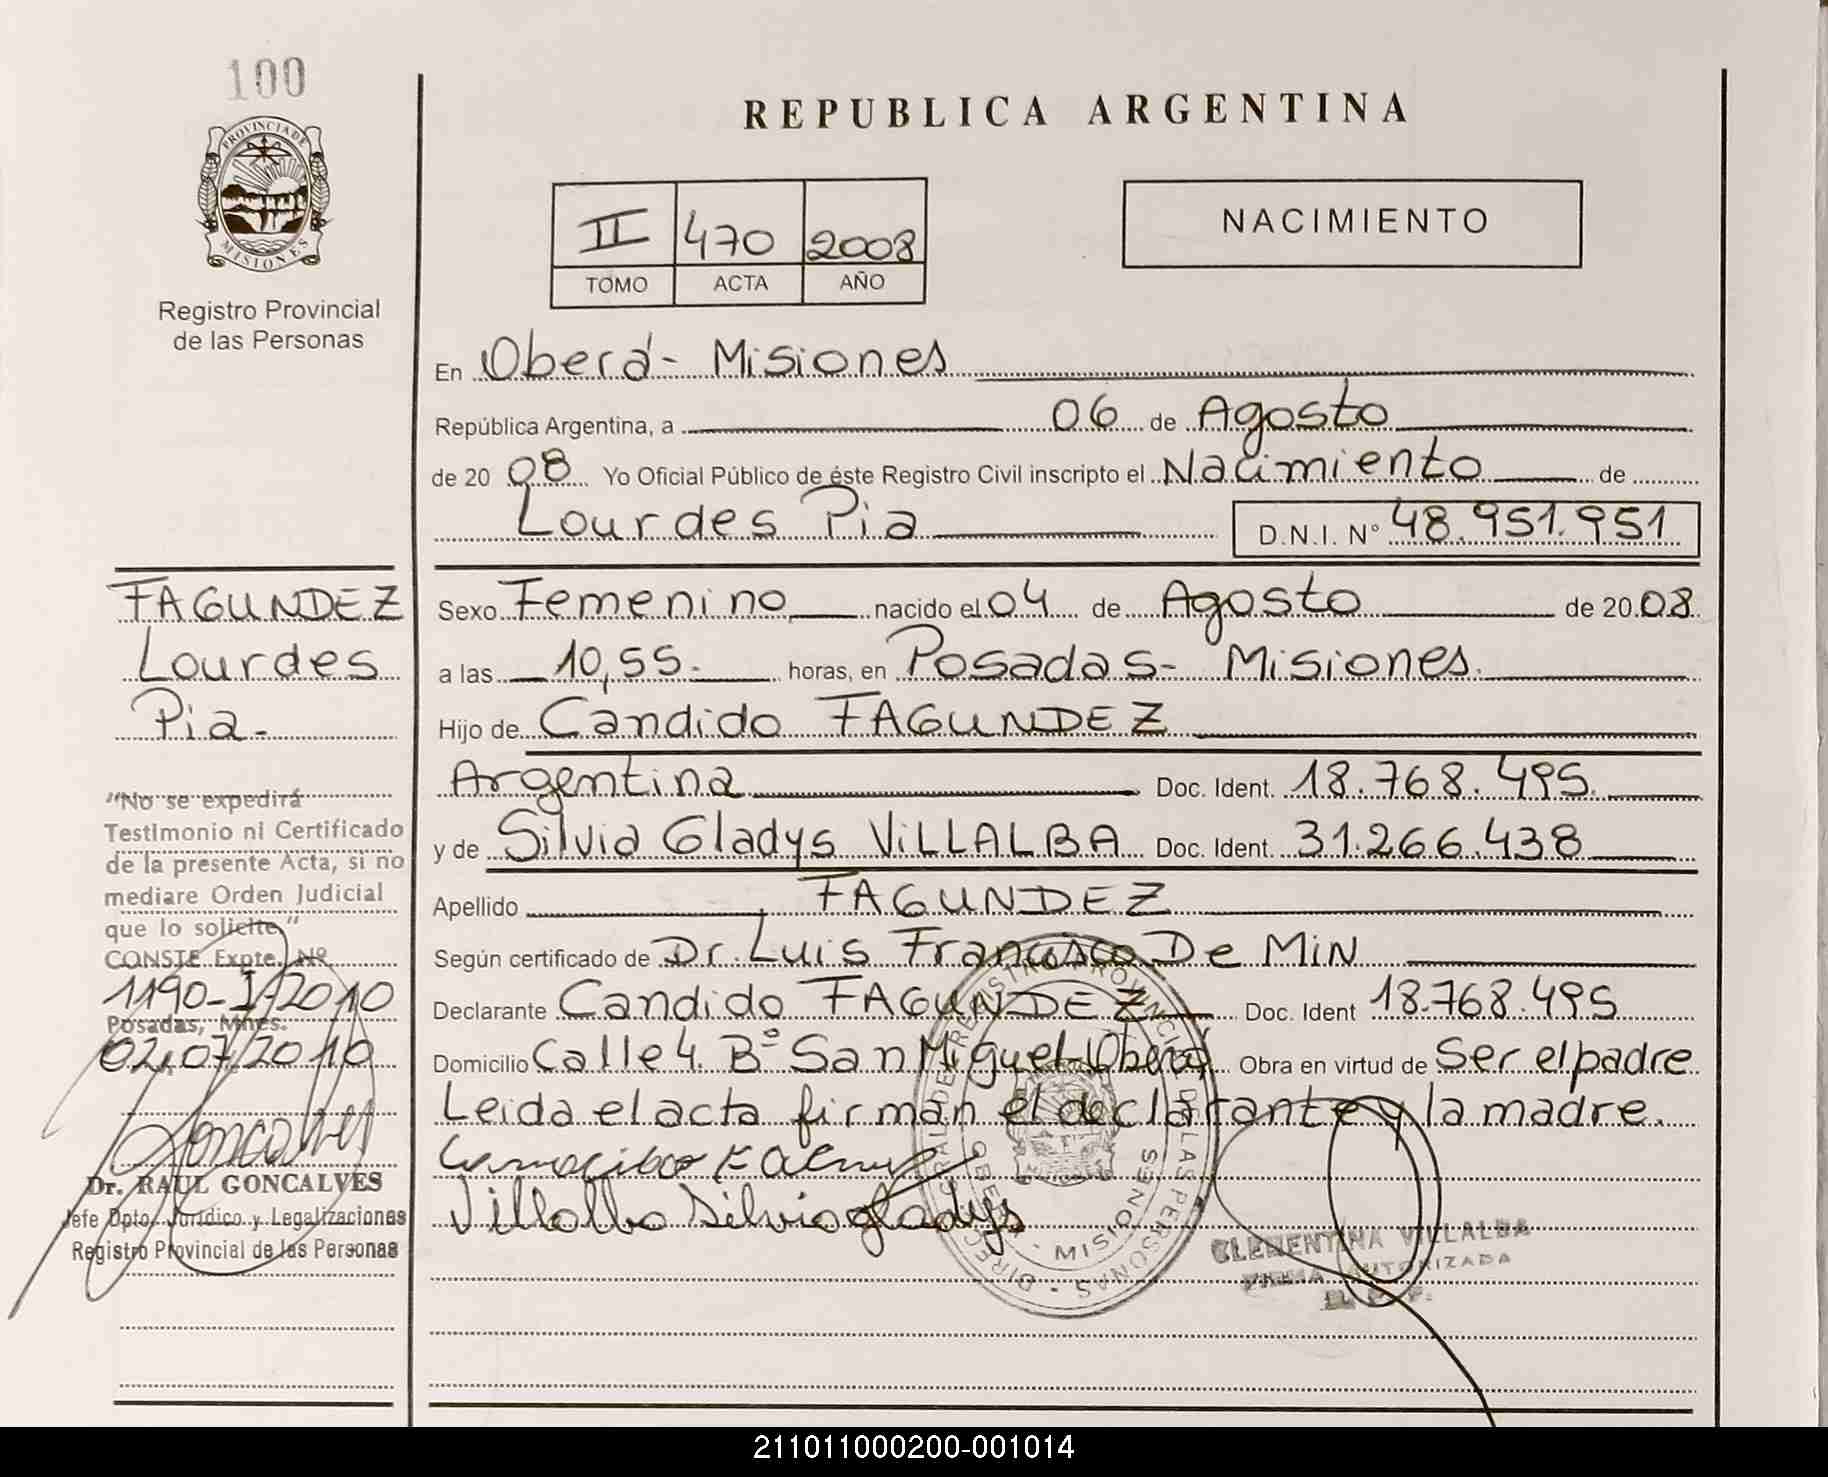 100
PROVINCIA DE
MISIONES
Registro Provincial
de las Personas
FAGUNDEZ
Lourdes
Pia.-
"No se expedirá
Testimonio ni Certificado
de la presente Acta, si no
mediare Orden Judicial
que lo solicite"
CONSTE Expte. Nº
1190-I-2010
Posadas, Mnes.
02,07,2010
Goncalves
Dr. RAUL GONCALVES
Jefe Dpto. Jurídico y Legalizaciones
Registro Provincial de las Personas
REPUBLICA ARGENTINA
II 470 2008
TOMO ACTA AÑO
NACIMIENTO
En Oberá- Misiones
República Argentina, a 06 de Agosto
de 20 08 Yo Oficial Público de éste Registro Civil inscripto el Nacimiento de
Lourdes Pia D.N.I. Nº 48.951.951
Sexo Femenino, nacido el 04 de Agosto de 20 08
a las 10,55.- horas, en Posadas- Misiones.
Hijo de Candido FAGUNDEZ
Argentina Doc. Ident. 18.768.495.
y de Silvia Gladys ViLLALBA Doc. Ident. 31.266.438
Apellido FAGUNDEZ
Según certificado de Dr. Luis Francisco De MiN
Declarante Candido FAGUNDEZ Doc. Ident 18.768.495
Domicilio Calle 4. Bº San Miguel-Oberá Obra en virtud de Ser el padre
Leida el acta firman el declarante y la madre.
Villalba Silvia gladys
DIRECC. GRAL. DEL REGISTRO PROVINCIAL DE LAS PERSONAS
OBERÁ - MISIONES
CLEMENTINA VILLALBA
FIRMA AUTORIZADA
211011000200-001014